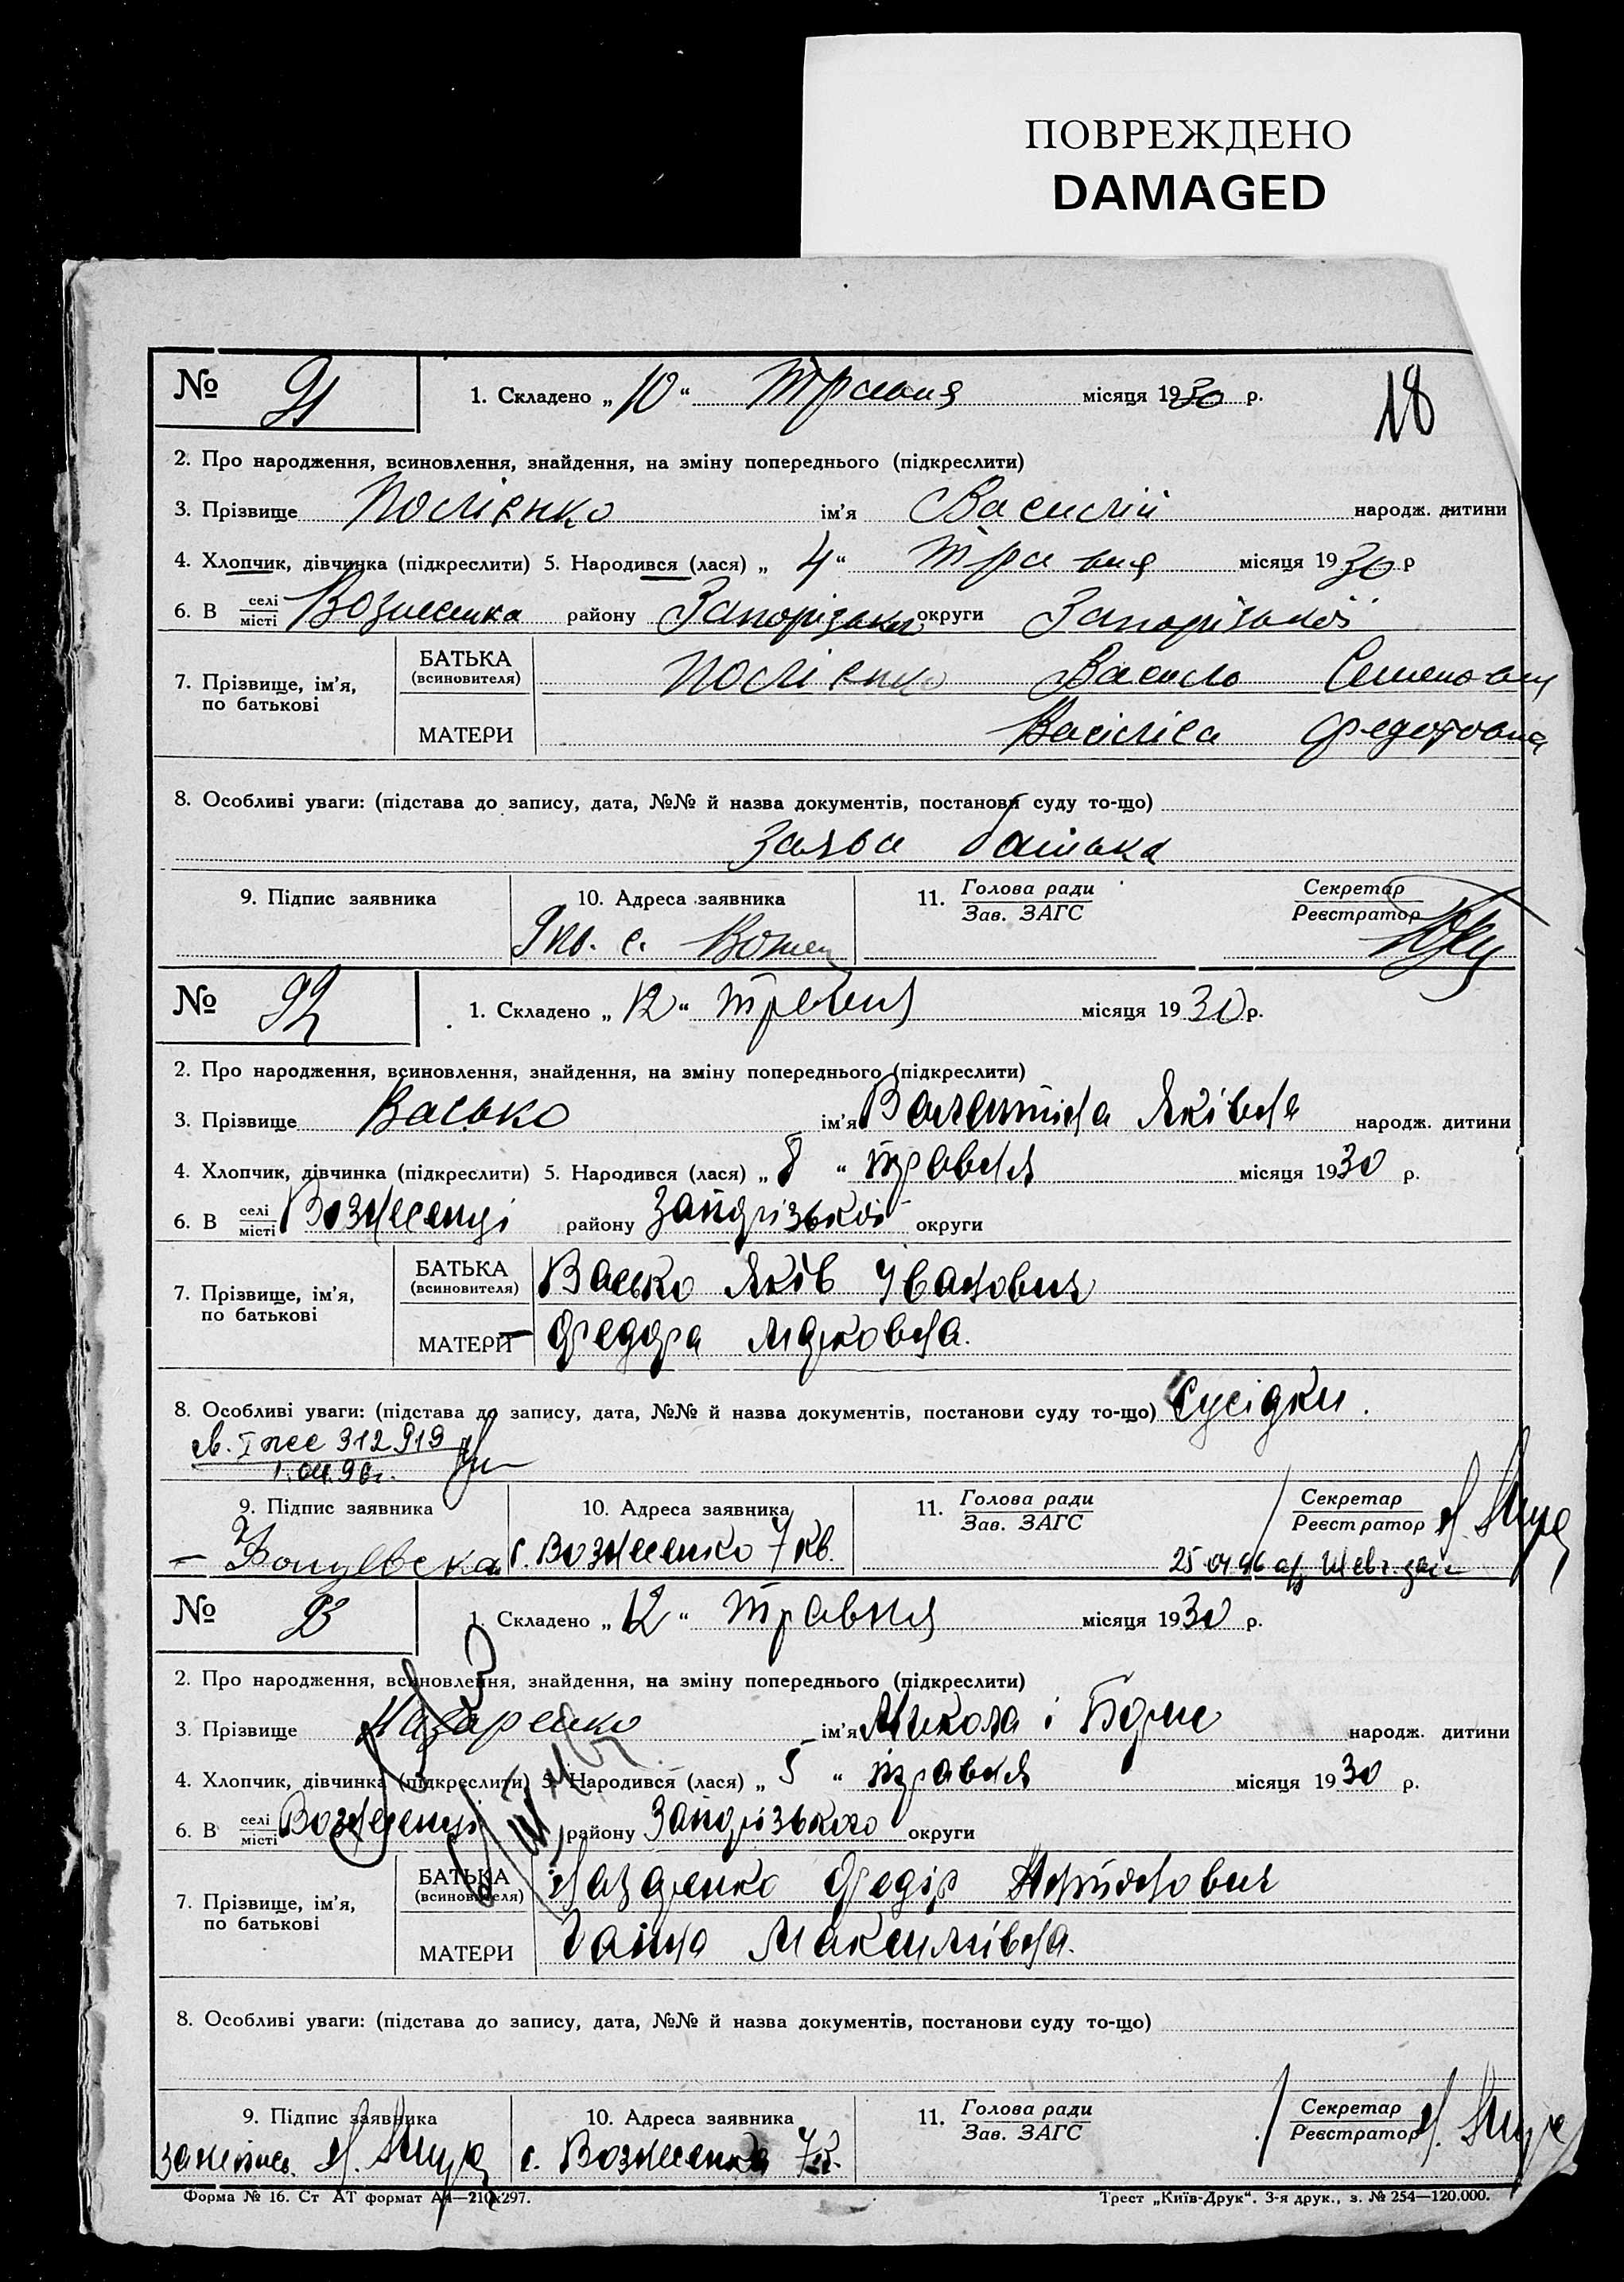 ПОВРЕЖДЕНО
DAMAGED
18
№ 91 1. Складено „ 10 “ Травня місяця 1930 р.
2. Про народження, всиновлення, знайдення, на зміну попереднього (підкреслити)
3. Прізвище ім'я Василій народж. дитини
4. Хлопчик, дівчинка (підкреслити) 5. Народився (лася) „ 4 “ Травня місяця 1930 р
6. В селі місті Вознесенка району Запорізького округи Запорізької
7. Прізвище, ім'я, по батькові
БАТЬКА (всиновителя) Василь Семенович
МАТЕРИ Василіса Федотовна
8. Особливі уваги: (підстава до запису, дата, №№ й назва документів, постанови суду то-що)
Заява батька
9. Підпис заявника 10. Адреса заявника 11. Голова ради Зав. ЗАГС Секретар Реєстратор
с.
№ 92 1. Складено „ 12 “ травня місяця 1930 р.
2. Про народження, всиновлення, знайдення, на зміну попереднього (підкреслити)
3. Прізвище Васько ім'я Валентина Яківна народж. дитини
4. Хлопчик, дівчинка (підкреслити) 5. Народився (лася) „ 8 “ травня місяця 1930 р.
6. В селі місті Вознесенці району Запорізької округи
7. Прізвище, ім'я, по батькові
БАТЬКА (всиновителя) Васько Яків Іванович
МАТЕРИ – Федора Марковна.
8. Особливі уваги: (підстава до запису, дата, №№ й назва документів, постанови суду то-що) Сусідки.
312919
1.04.96г.
9. Підпис заявника 10. Адреса заявника 11. Голова ради Зав. ЗАГС Секретар Реєстратор
с. Вознесенко 7 кв.
№ 93 1. Складено „ 12 “ травня місяця 1930 р.
2. Про народження, всиновлення, знайдення, на зміну попереднього (підкреслити)
3. Прізвище Назаренко ім'я Микола і народж. дитини
4. Хлопчик, дівчинка (підкреслити) 5. Народився (лася) „ 5 “ травня місяця 1930 р.
6. В селі місті Вознесенці району Запорізького округи
7. Прізвище, ім'я, по батькові
БАТЬКА (всиновителя) Назаренко Федір
МАТЕРИ Ганна Максимівна.
8. Особливі уваги: (підстава до запису, дата, №№ й назва документів, постанови суду то-що)
9. Підпис заявника 10. Адреса заявника 11. Голова ради Зав. ЗАГС Секретар Реєстратор
с. Вознесенка
Форма № 16. Ст АТ формат А4—210х297. Трест „Київ-Друк“. 3-я друк., з. № 254—120.000.